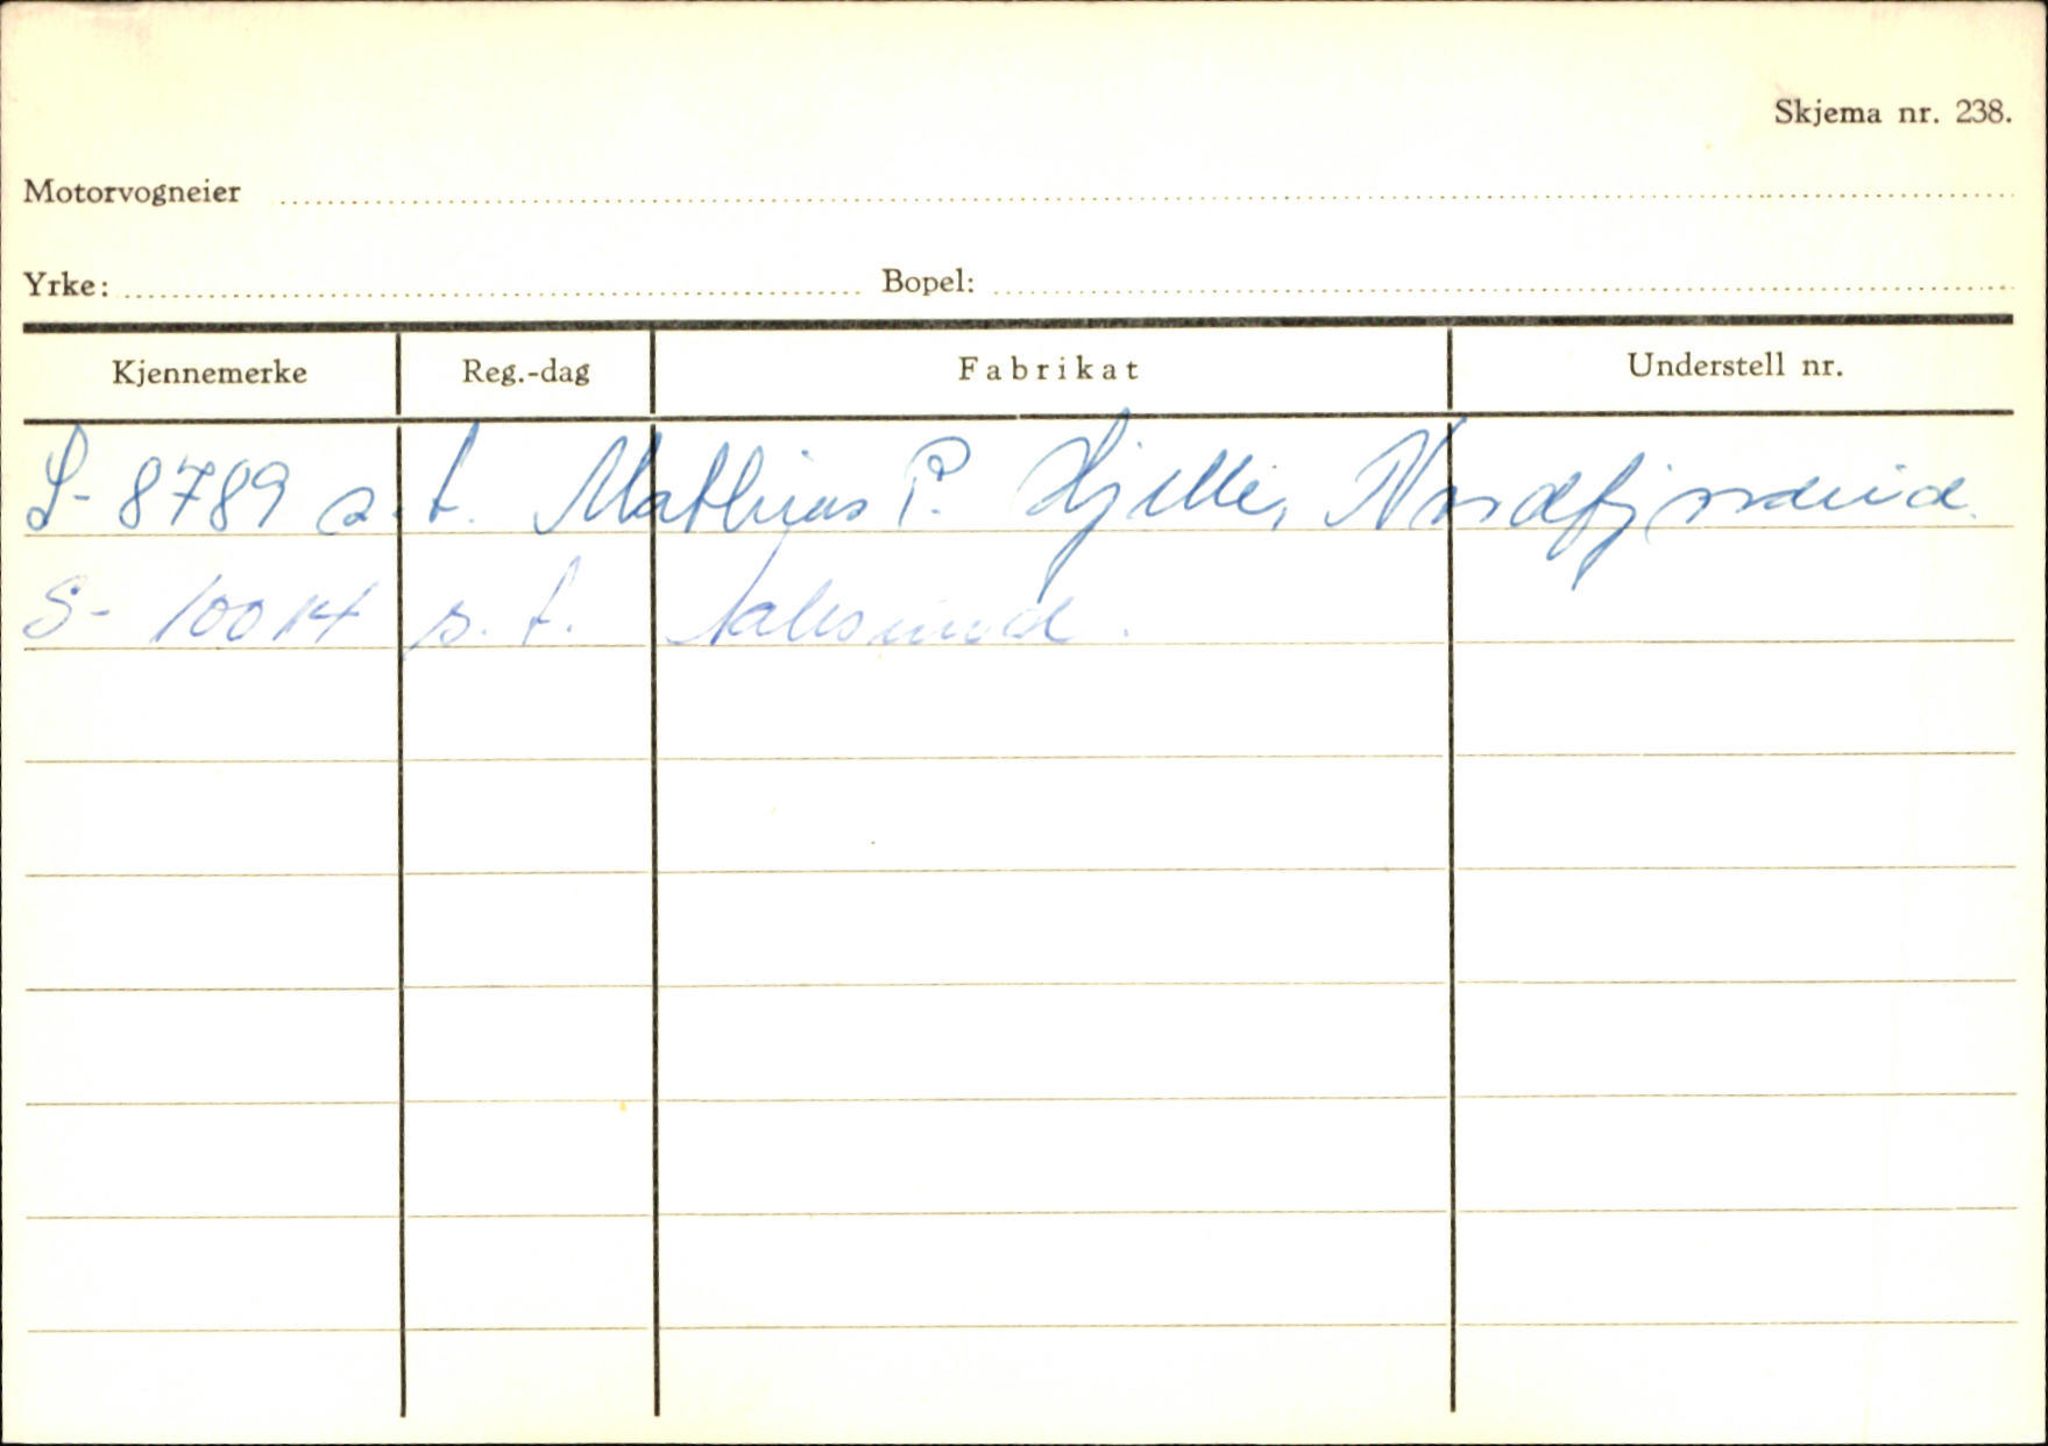 Skjema nr. 238.
Motorvogneier
Yrke: Bopel:
Kjennemerke Reg.-dag Fabrikat Understell nr.
S-8789 s.t. Mathias P. Hjelle, Nordfjordeid.
S- 10014 s.t. Aalesund.